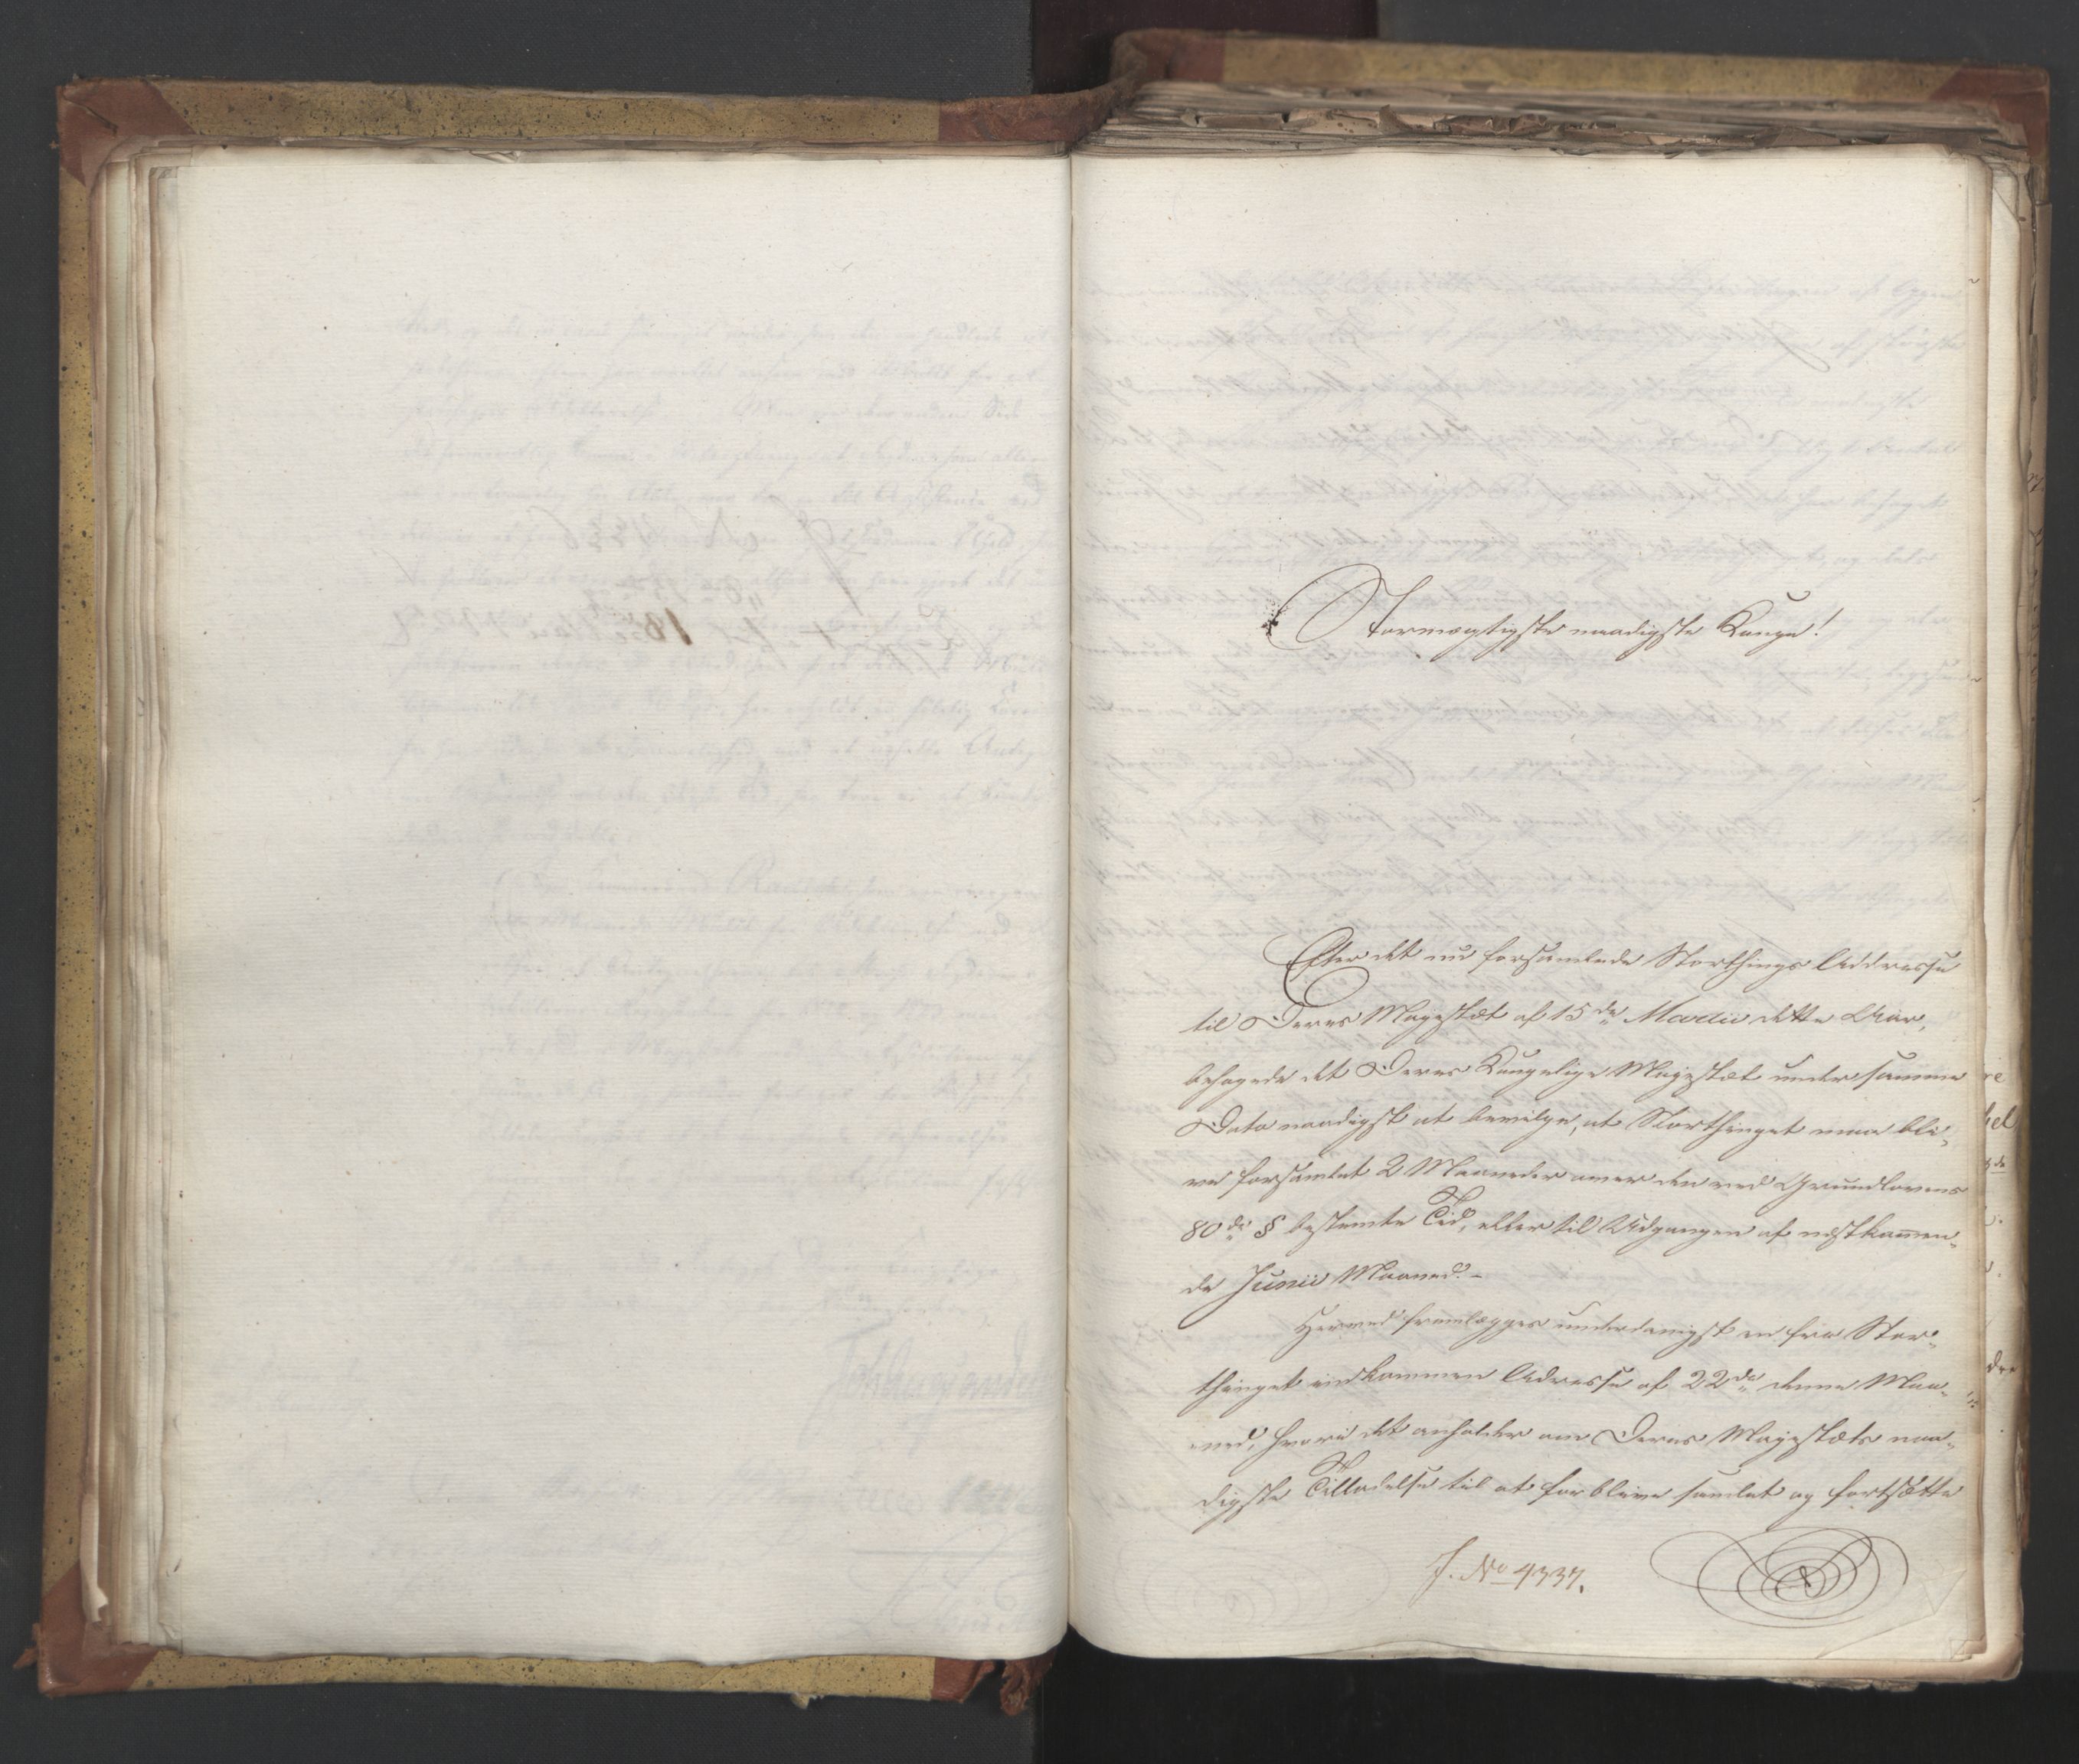 Stormægtigste naadigste Konge!
Efter det nu forsamlede Storthings Addresse
til Deres Majestæt af 15de Martii dette Aar,
behagede det Deres Kongelige Majestæt under samme
Dato naadigst at bevilge, at Storthinget maa bli-
ve forsamlet 2 Maaneder over den ved Grundlovens
80de § bestemte Tid, eller til Udgangen af næstkom̄en-
de Junii Maaned.-
Herved fremlægges underdanigst en fra Stor-
thinget indkommen Adresse af 22de denne Maa-
ned, hvori det anholder om Deres Majestæts naa-
digste Tilladelse til at forblive samlet og fortsætte
J. No 4337.